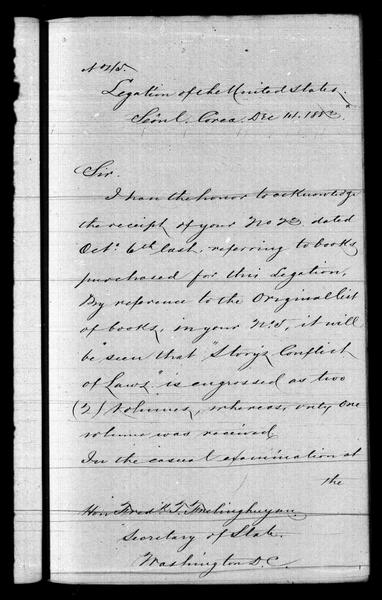 Legation of the United States.
Seoul, Corea Dec 14. 1883.
Sir.
I have the honor to acknowledge
the receipt of your No dated
Oct. 6th last, referring to books
purchased for this Legation,
By reference to the Original list
of books, in your No. 5, it will
be seen that "Story's Conflict
of Laws" is engrossed as two
(2) Volumes, whereas, only one
volume was received
In the casual examination at
the
Hon Fredk. T. Frelinghuysen.
Secretary of State.
Washington D.C.